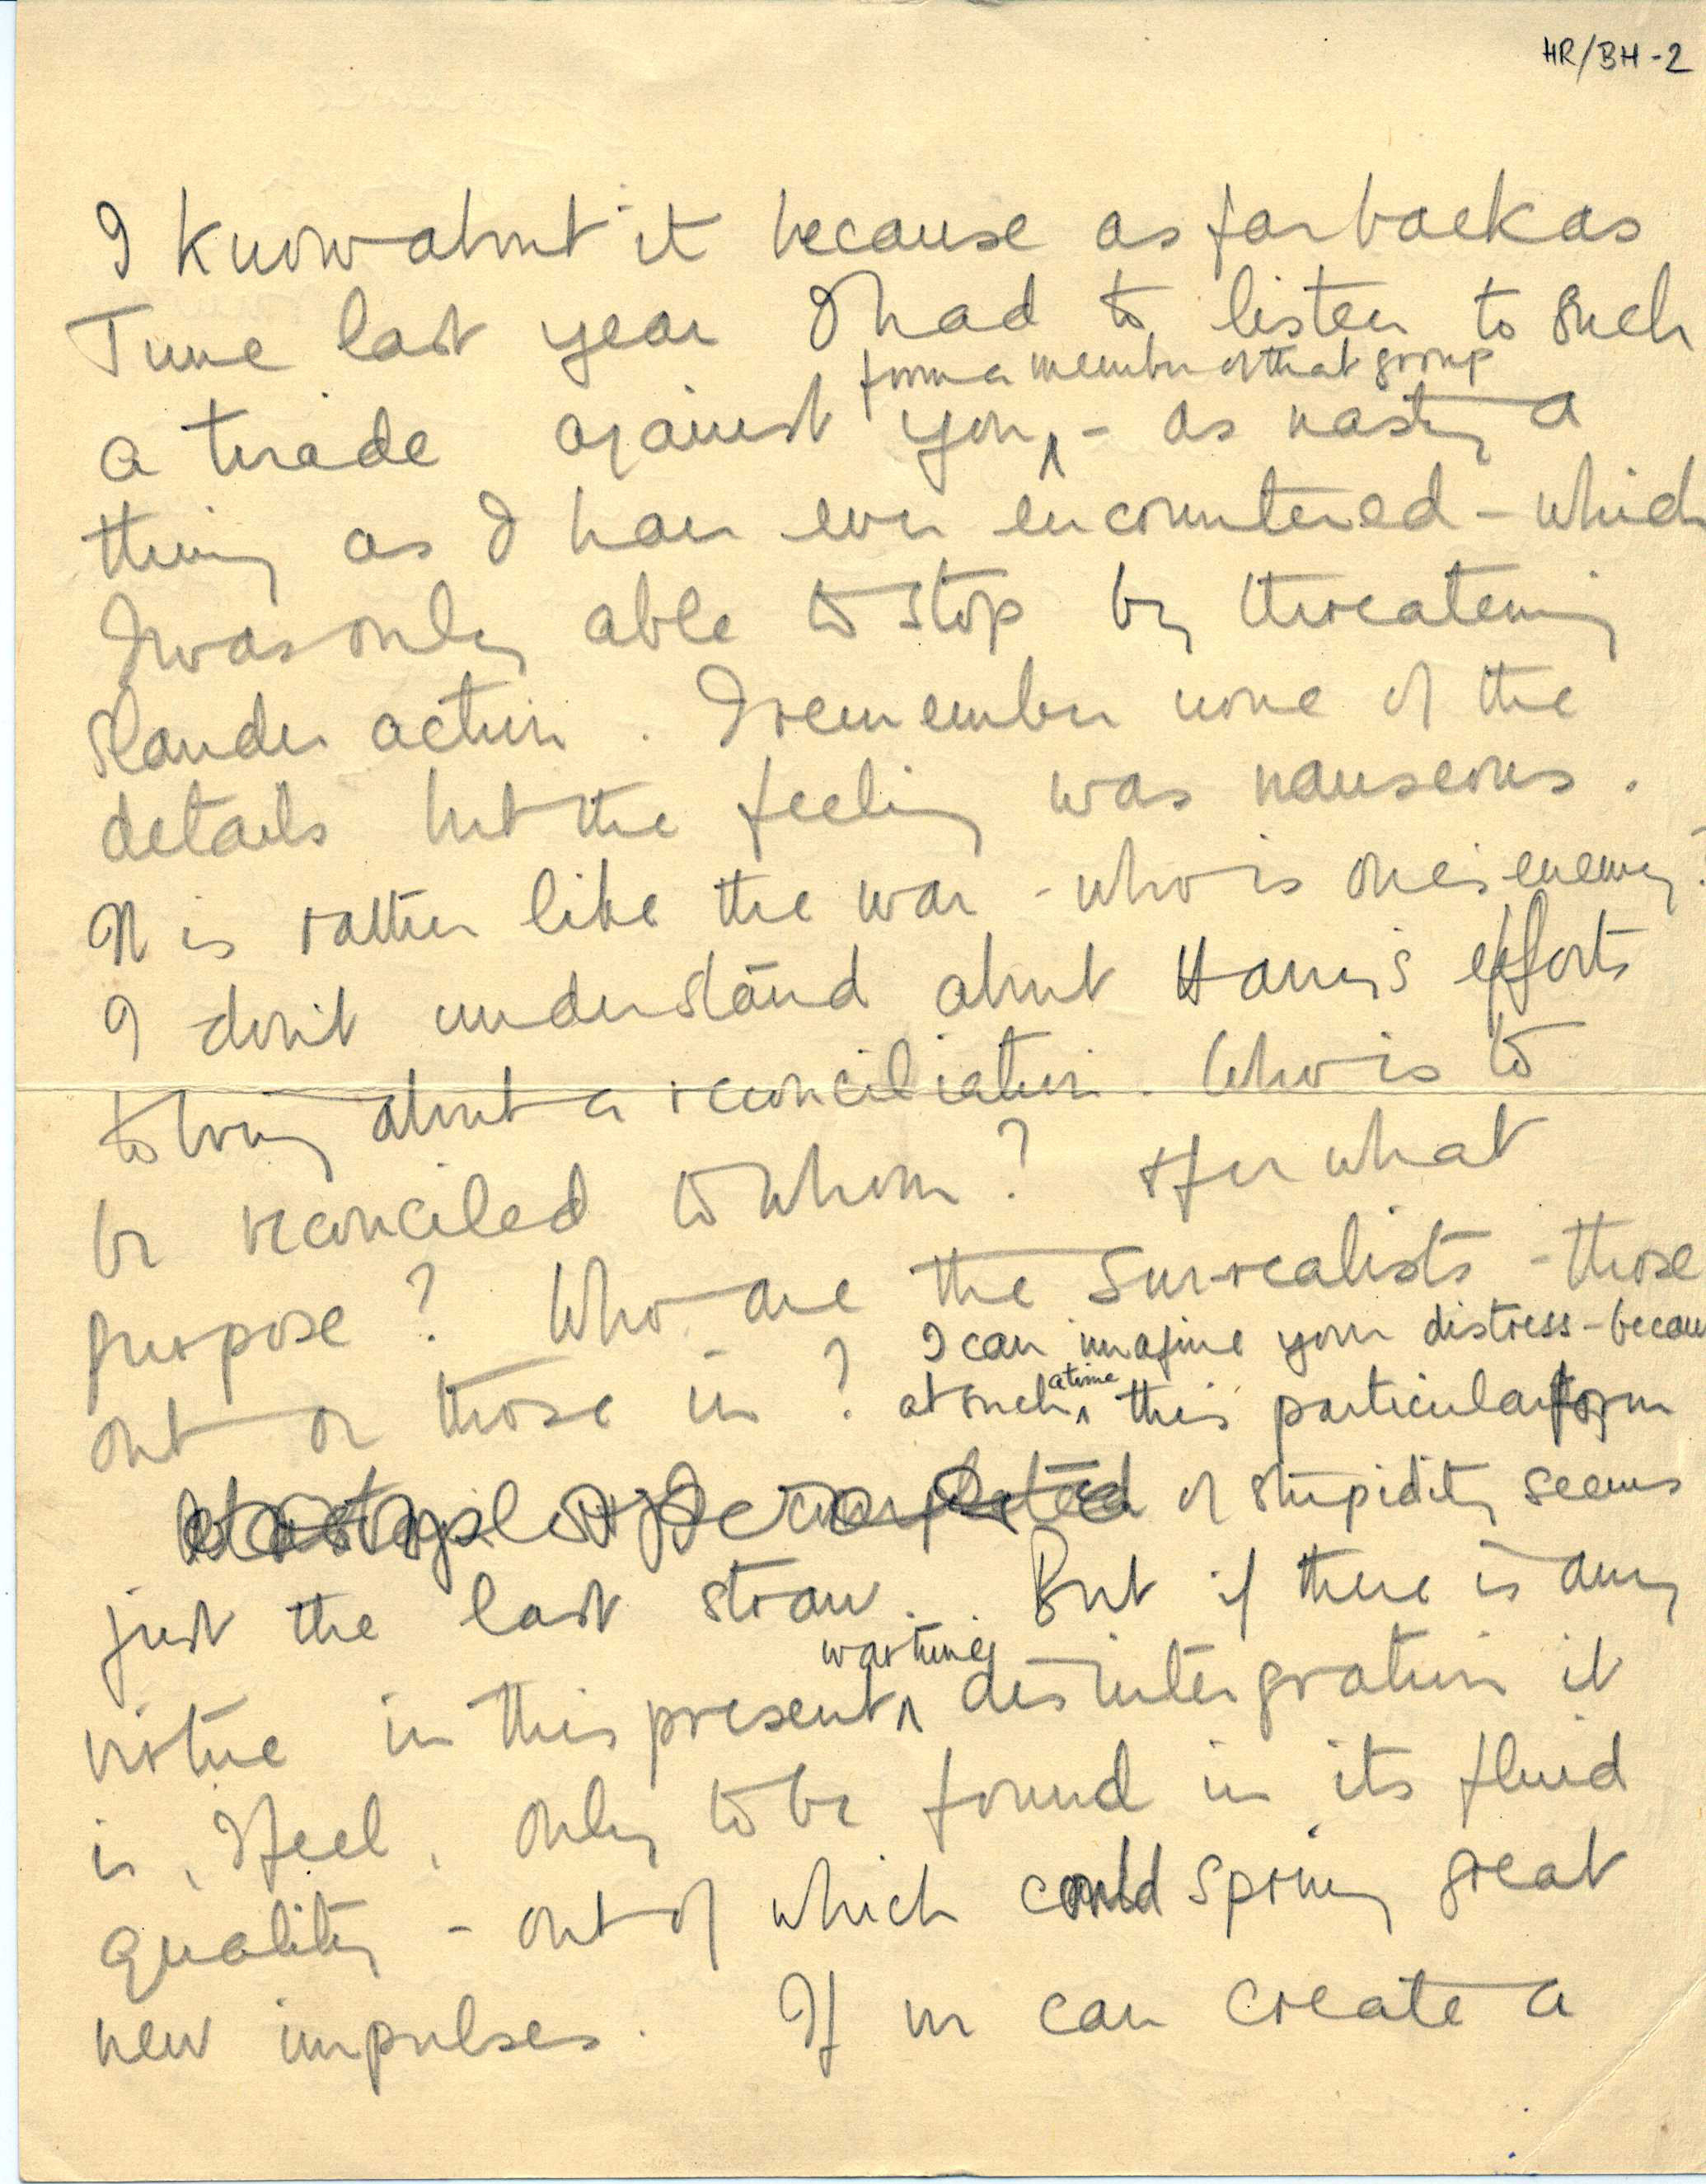 HR/BH-2
I know about it because as far back as
June last year I had to listen to such
from a member of that group
a tirade against you, - as nasty a
thing as I have ever encountered - which
I was only able to stop by threatening
slander action. I remember none of the
details but the feeling was nauseous.
It is rather like the war - who is one's enemy?
I don't understand about Harry's efforts
to bring about a reconciliation. Who is to
be reconciled to whom? & for what
purpose? Who are the Surrealists - those
I can imagine your distress - becau
out or those in? at such a time this particular form
of stupidity seems
just the last straw. But if there is any
wartime
virtue in this present disintegration it
is, I feel, only to be found in its fluid
quality - out of which could spring great
new impulses. If we can create a